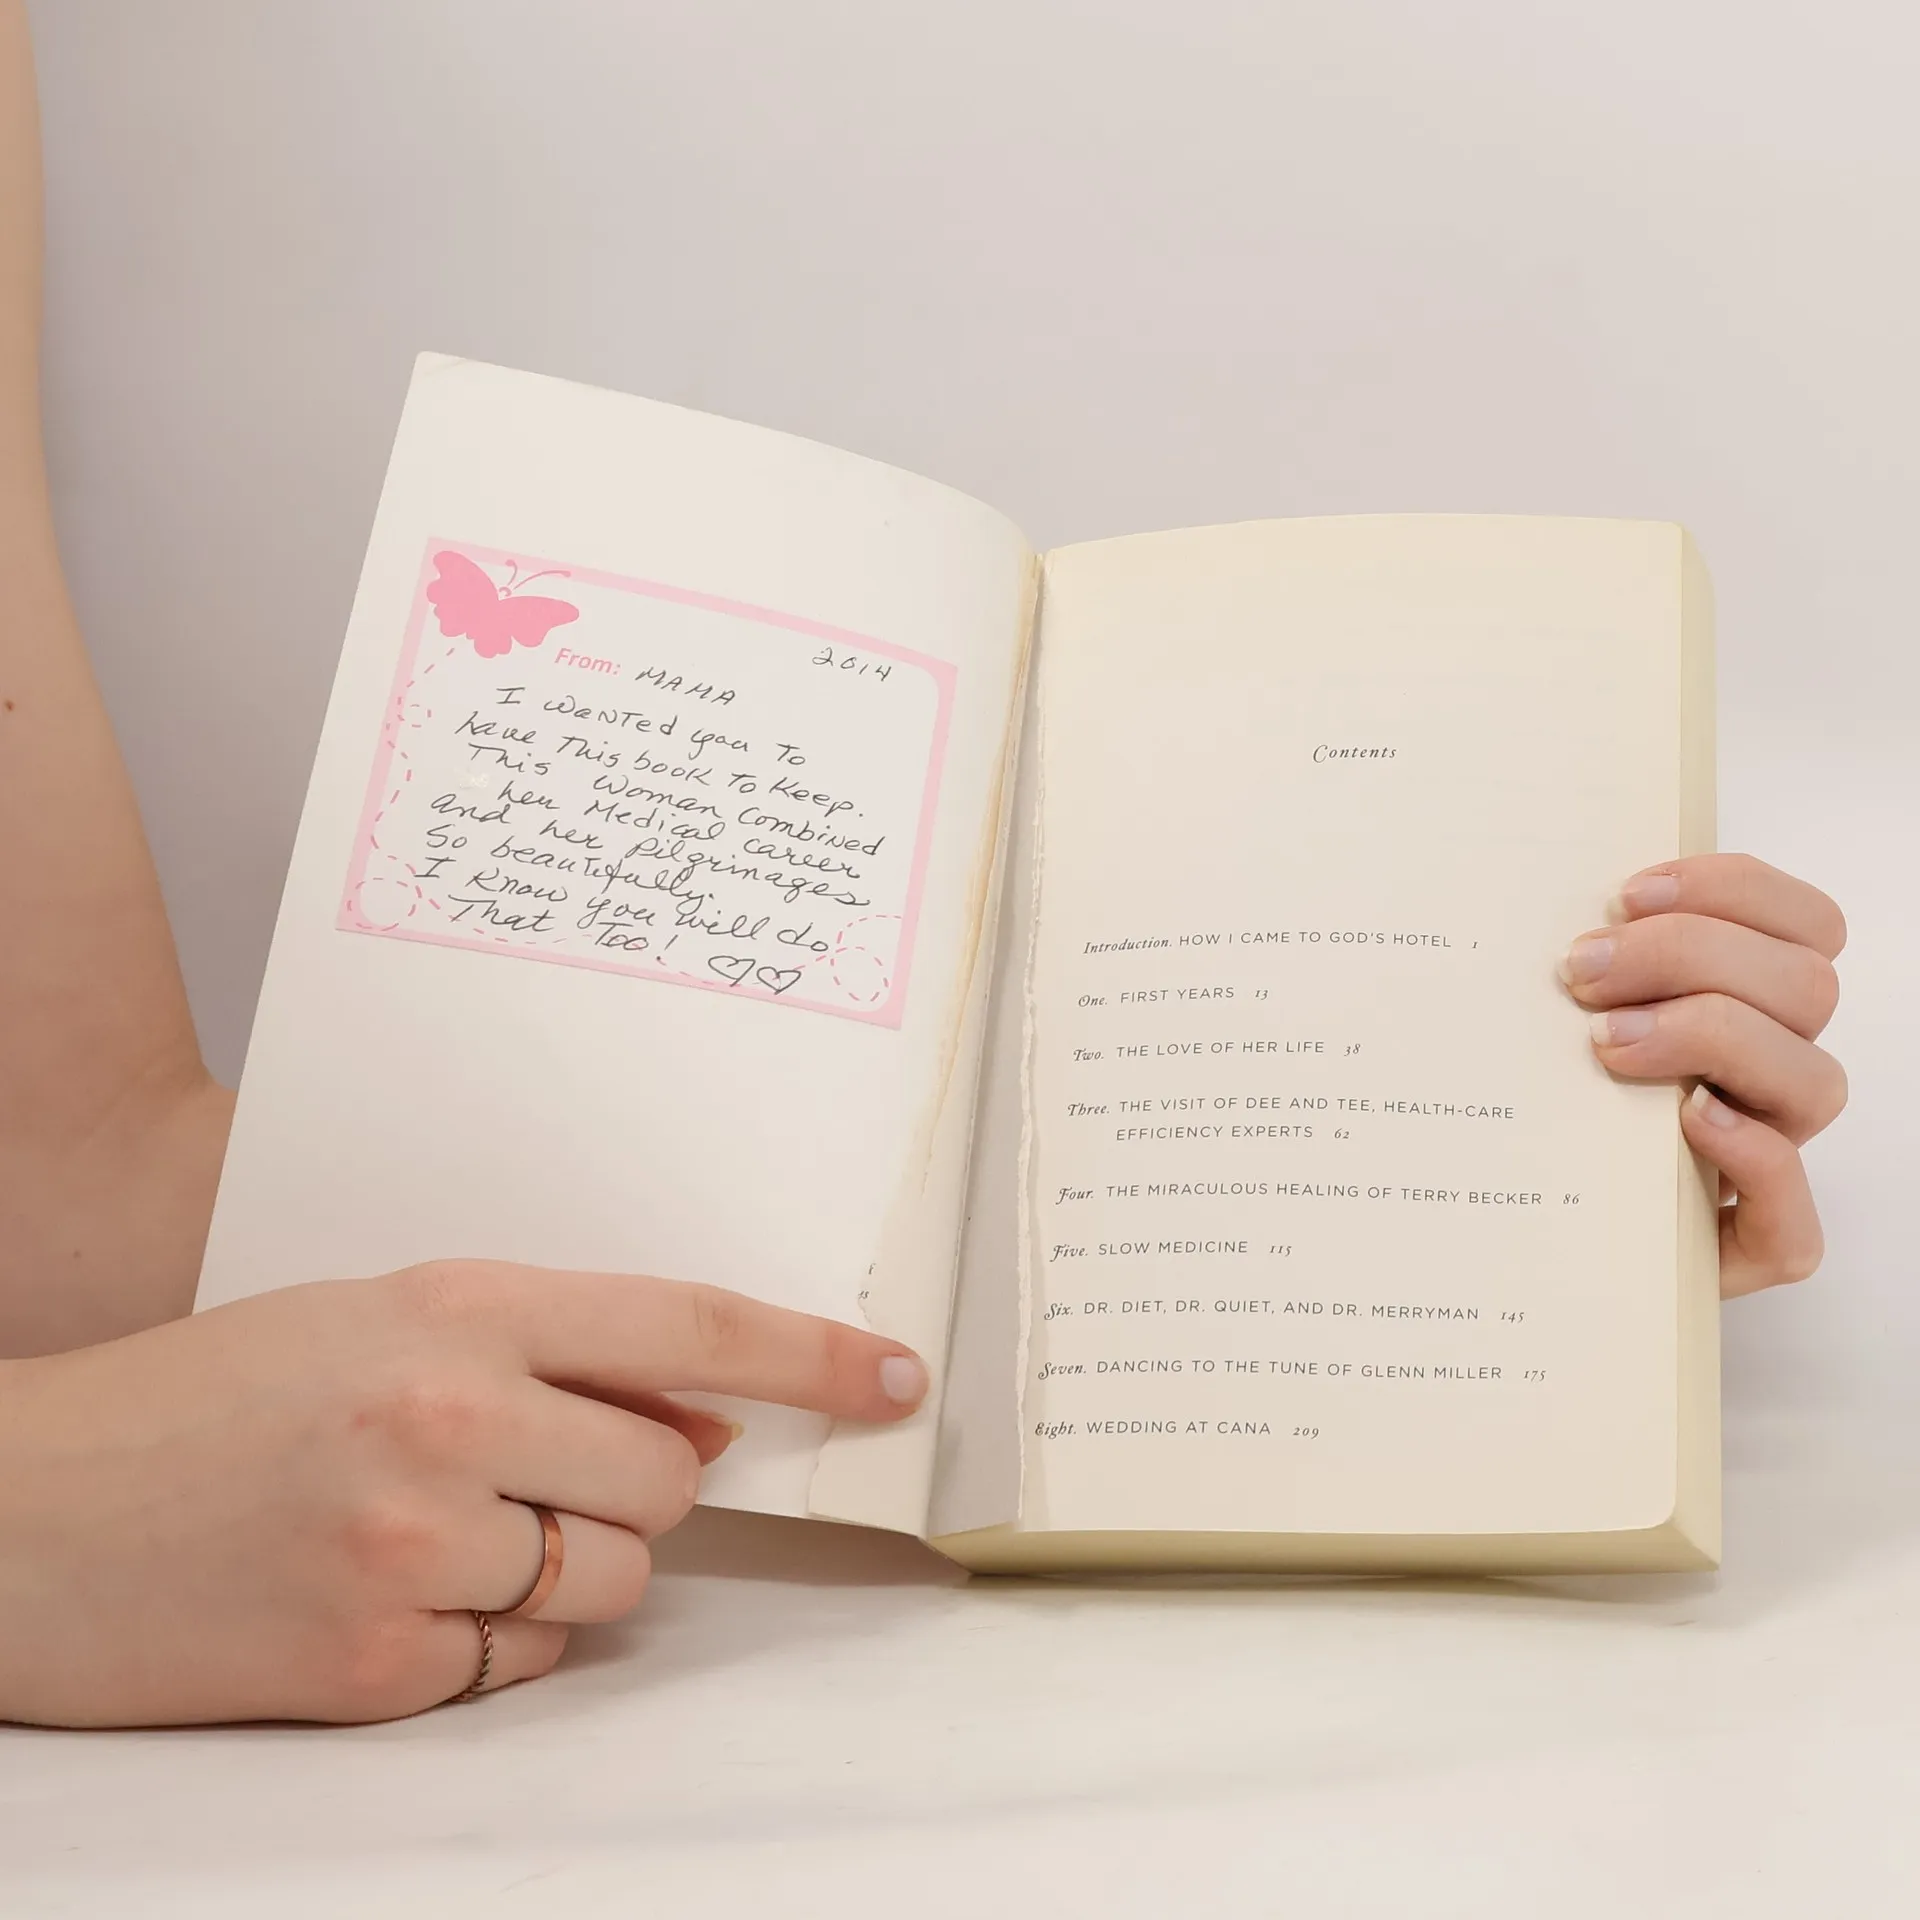 From: MAMA 2014
I wanted you to
have this book to keep.
This woman combined
her Medical career
and her pilgrimages
so beautifully.
I know you will do
That Too!
Contents
Introduction. HOW I CAME TO GOD'S HOTEL 1
One. FIRST YEARS 13
Two. THE LOVE OF HER LIFE 38
Three. THE VISIT OF DEE AND TEE, HEALTH-CARE
EFFICIENCY EXPERTS 62
Four. THE MIRACULOUS HEALING OF TERRY BECKER 86
Five. SLOW MEDICINE 115
Six. DR. DIET, DR. QUIET, AND DR. MERRYMAN 145
Seven. DANCING TO THE TUNE OF GLENN MILLER 175
Eight. WEDDING AT CANA 209